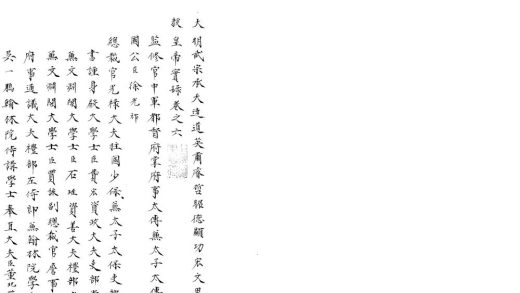 大明武宗承天達道英肅睿哲昭德顯功宏文思
毅皇帝實錄卷之六
監修官中軍都督府掌府事太傅兼太子太傅
國公臣徐光祚
總裁官光祿大夫柱國少保兼太子太保吏部
書謹身殿大學士臣費宏資政大夫吏部
兼文淵閣大學士臣石珤資善大夫禮部
兼文淵閣大學士臣賈詠副總裁官詹事
府事通議大夫禮部左侍郎兼翰林院學
吳一鵬翰林院侍講學士奉直大夫臣董玘